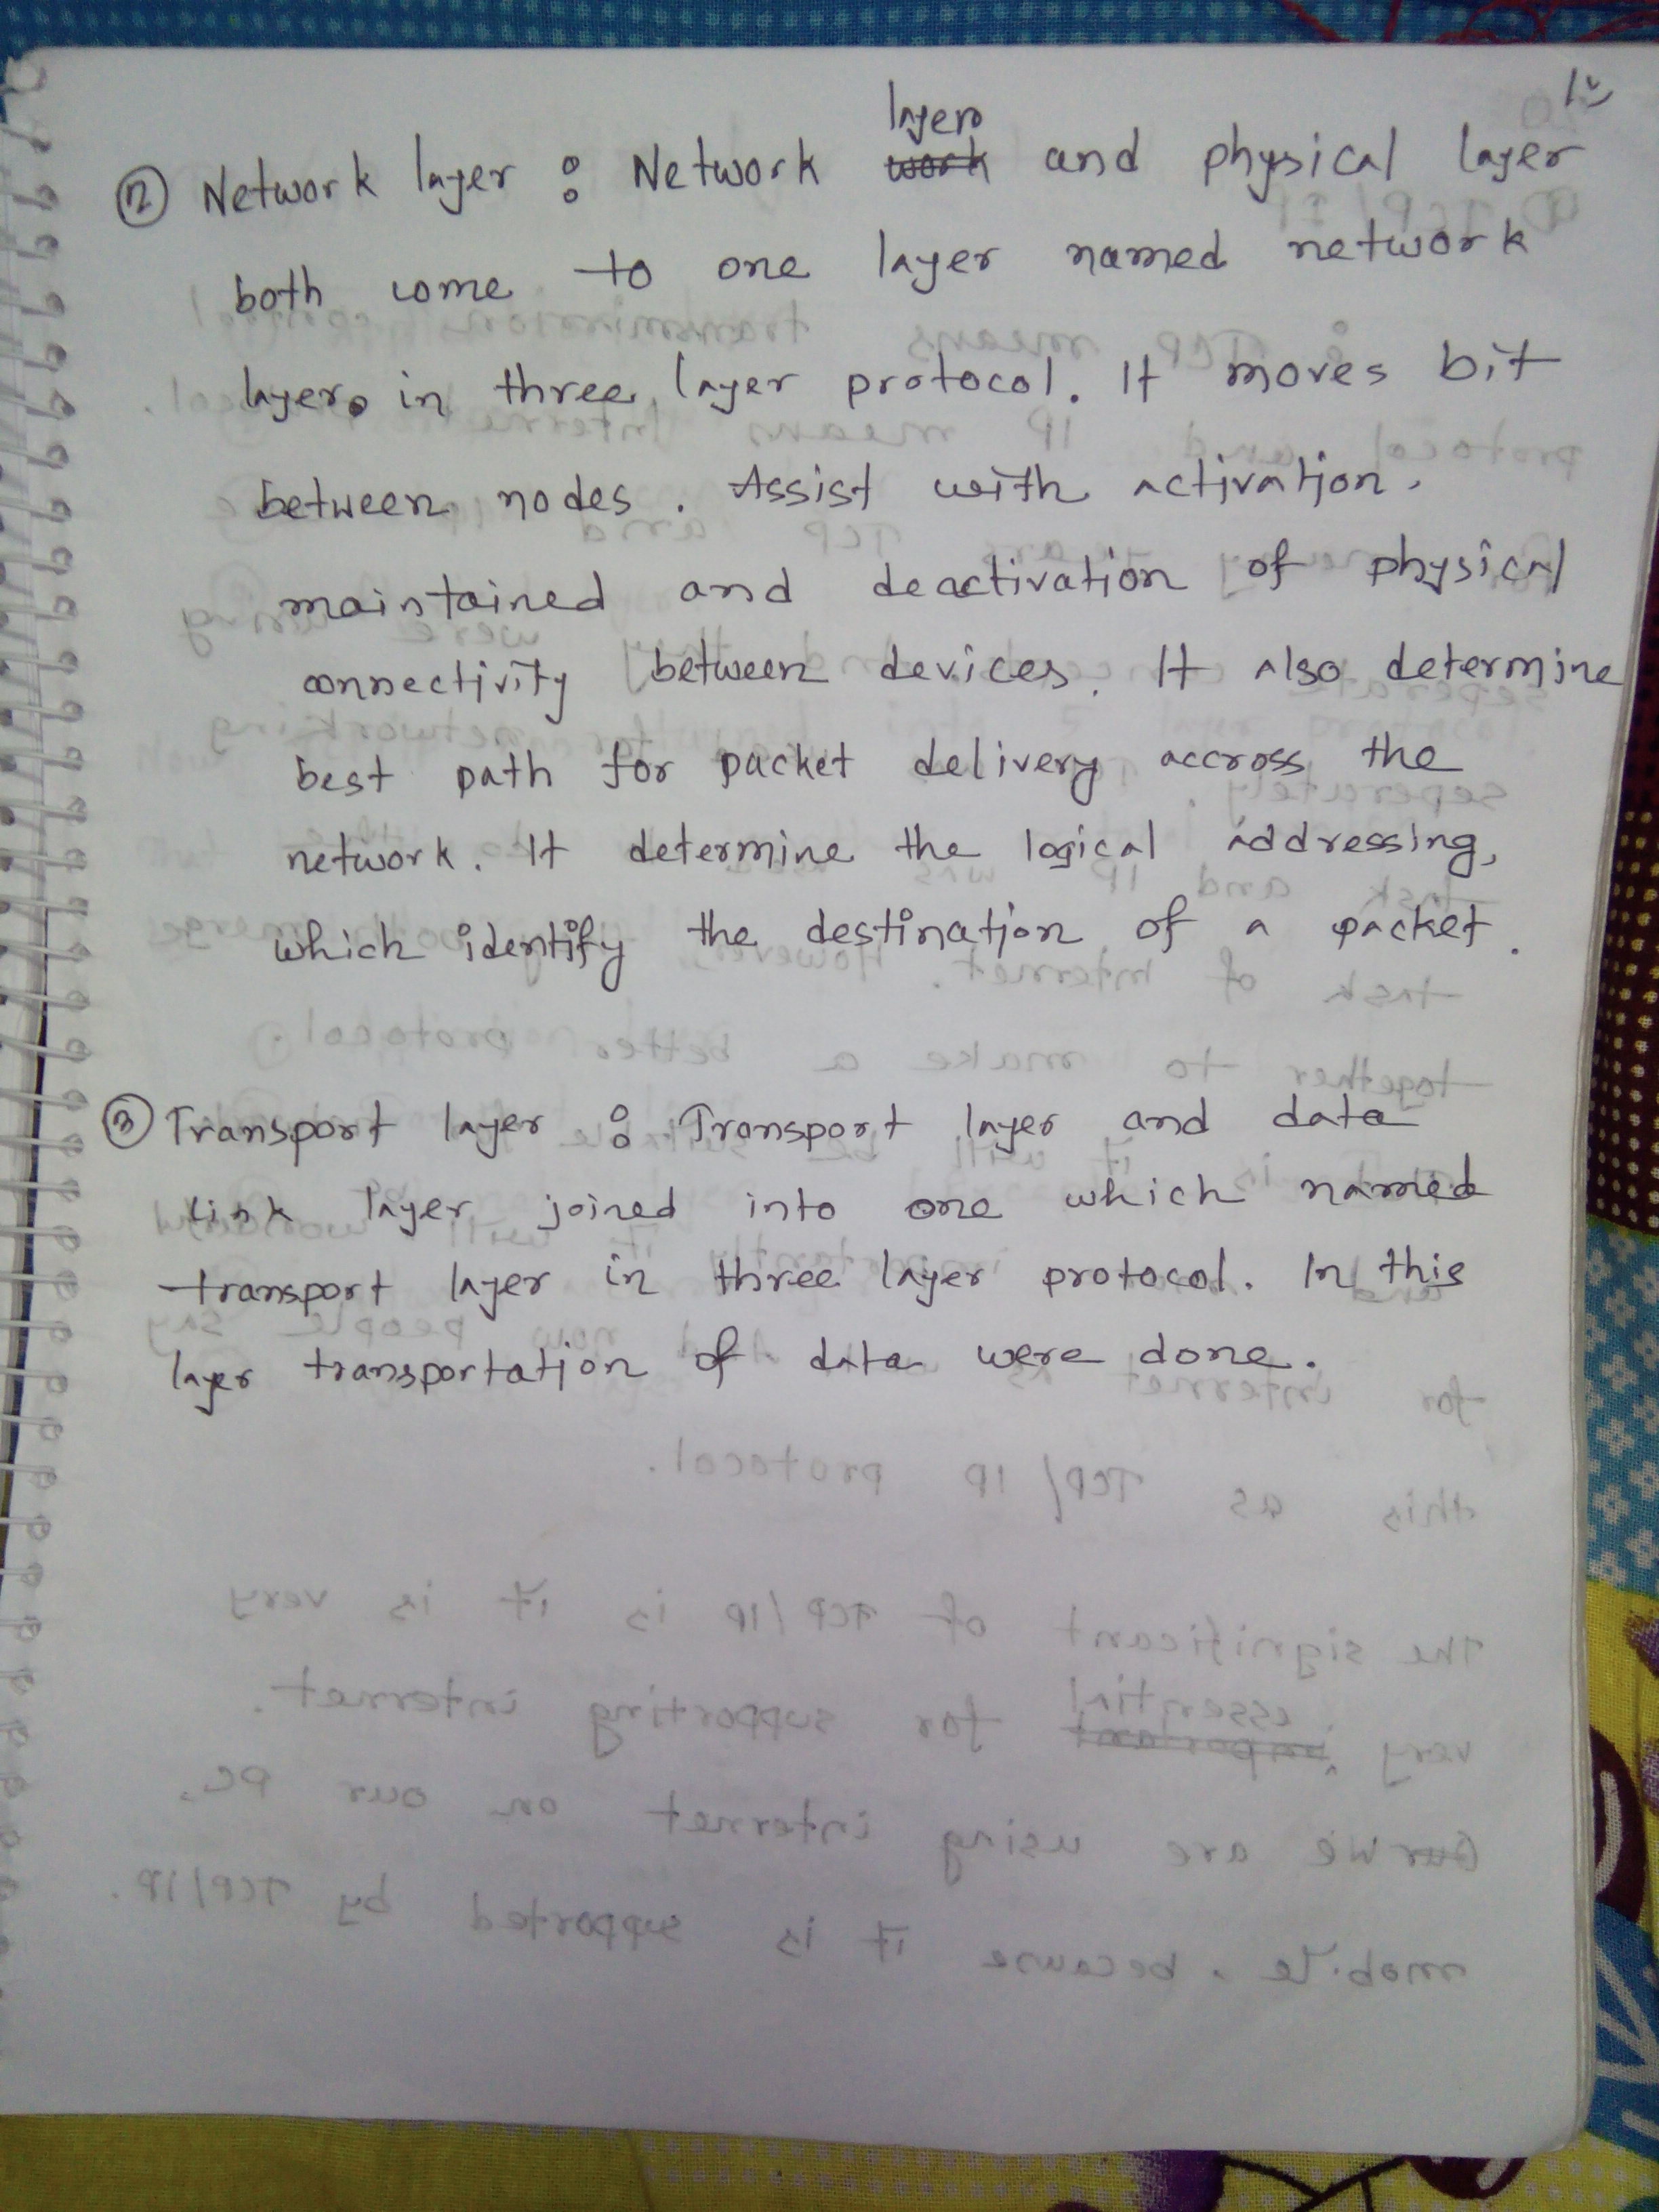 ② Network layer : Network layer and physical layer
both come to one layer named network
layer in three layer protocol. It moves bit
between nodes. Assist with activation,
maintained and deactivation of physical
connectivity between devices. It also determine
best path for packet delivery accross the
network. It determine the logical addressing,
which identify the destination of a packet.
③ Transport layer : Transport layer and data
link layer joined into one which named
transport layer in three layer protocol. In this
layer transportation of data were done.